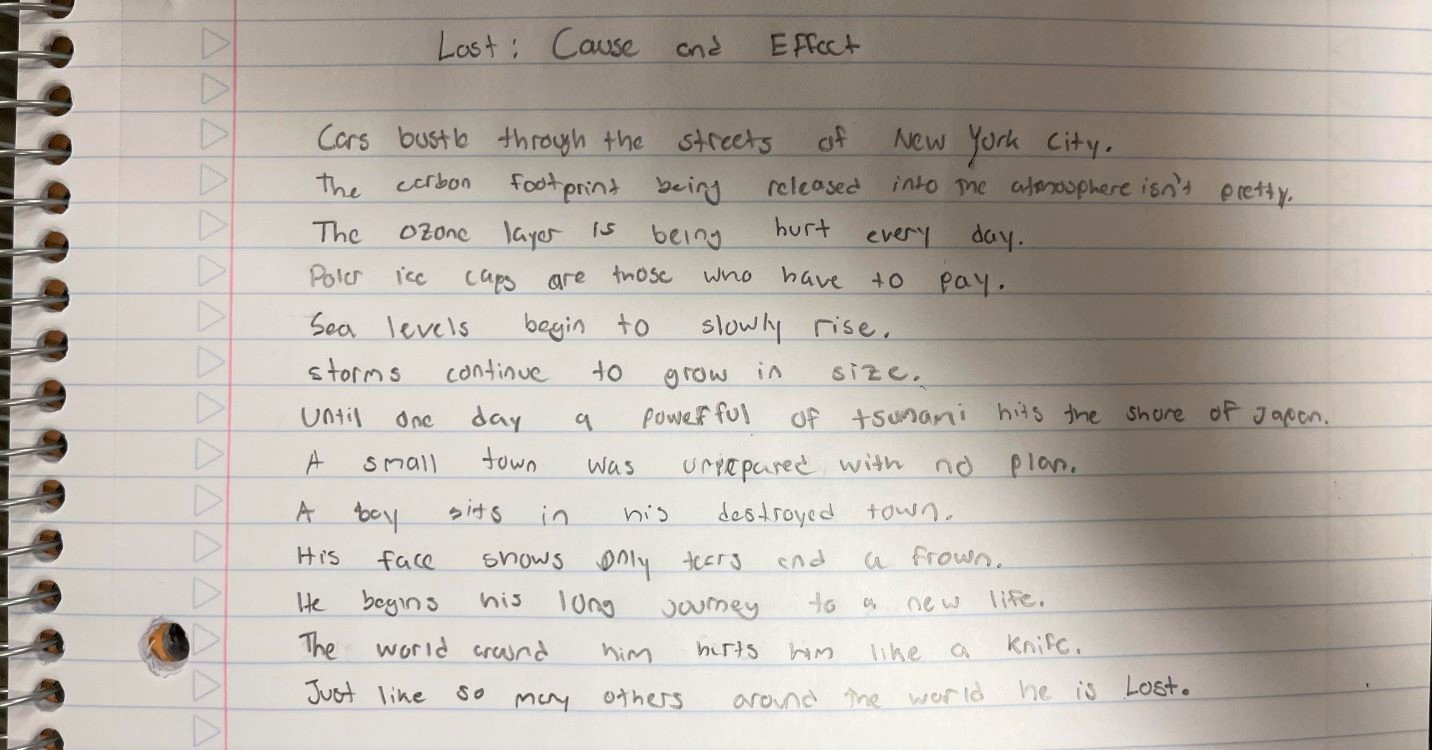 Lost: Cause and Effect
Cars bustle through the streets of New York City.
The carbon footprint being released into the atmosphere isn't pretty.
The ozone layer is being hurt every day.
Polar ice caps are those who have to pay.
Sea levels begin to slowly rise.
storms continue to grow in size.
Until one day a powerful of tsunami hits the shore of Japan.
A small town was unprepared with no plan.
A boy sits in his destroyed town.
His face shows only tears and a frown.
He begins his long journey to a new life.
The world around him hurts him like a knife.
Just like so many others around the world he is Lost.